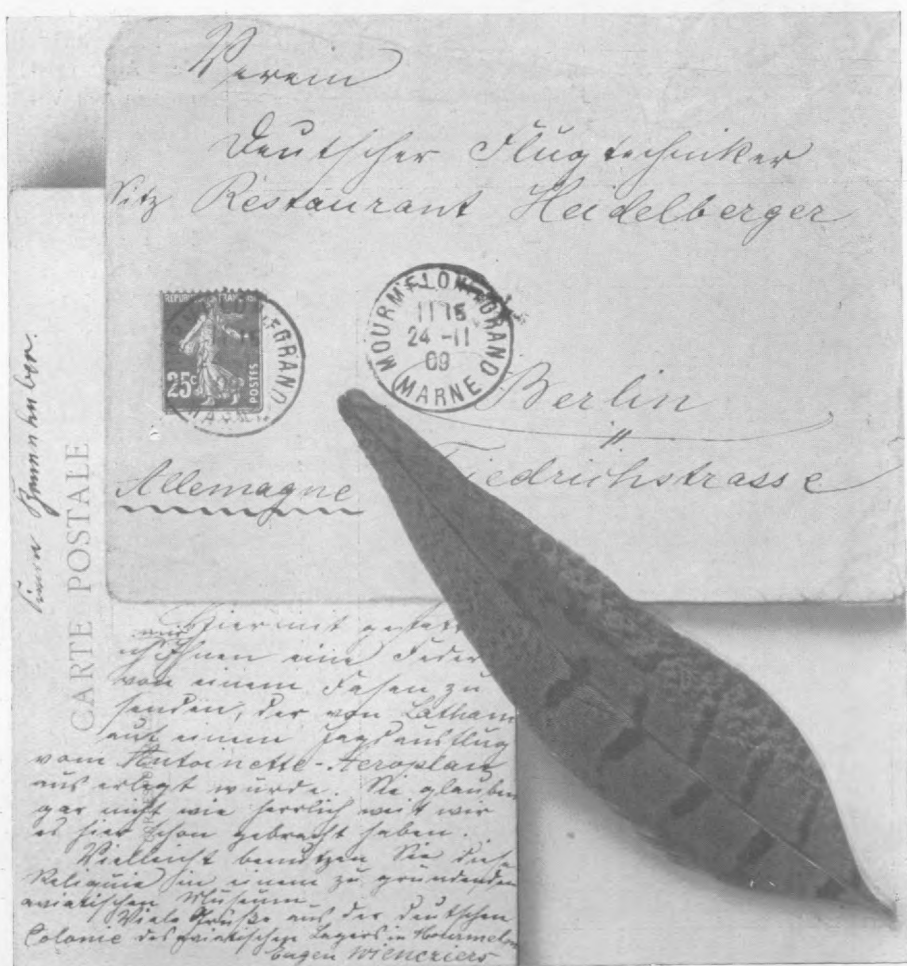 Verein
Deutscher Flugtechniker
Sitz Restaurant Heidelberger
REPUBLIQUE FRANÇAISE
25c
POSTES
GRAND
MOURMELON-LE-GRAND
11 15
24 -11
09
MARNE
Berlin
Allemagne Friedrichstrasse
CARTE POSTALE
Hiermit gestatte
ich mir Ihnen eine Feder
von einem Fasan zu
senden, der von Latham
auf einem Jagdausflug
vom Antoinette-Aeroplan
aus erlegt wurde. Sie glauben
gar nicht wie herrlich weit wir
es hier schon gebracht haben.
Vielleicht benutzen Sie diese
Reliquie in einem zu gründenden
aviatischen Museum.
Viele Grüße aus der deutschen
Colonie des aviatischen Lagers in Mourmelon
Eugen Wiencziers